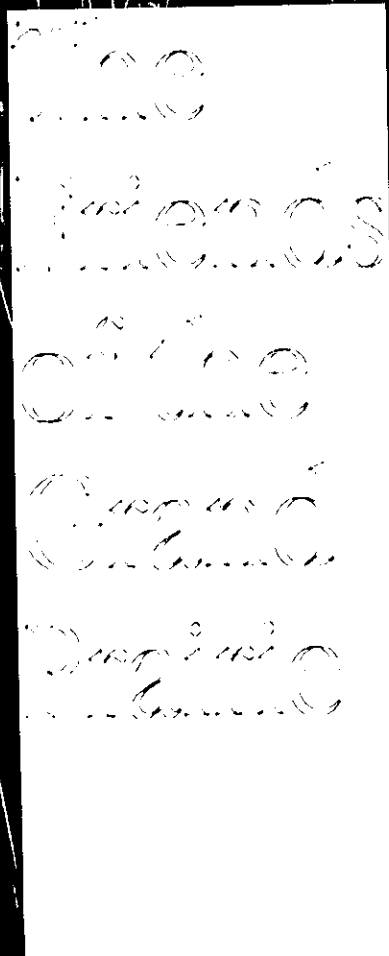 The
Friends
of the
Grand
Prairie